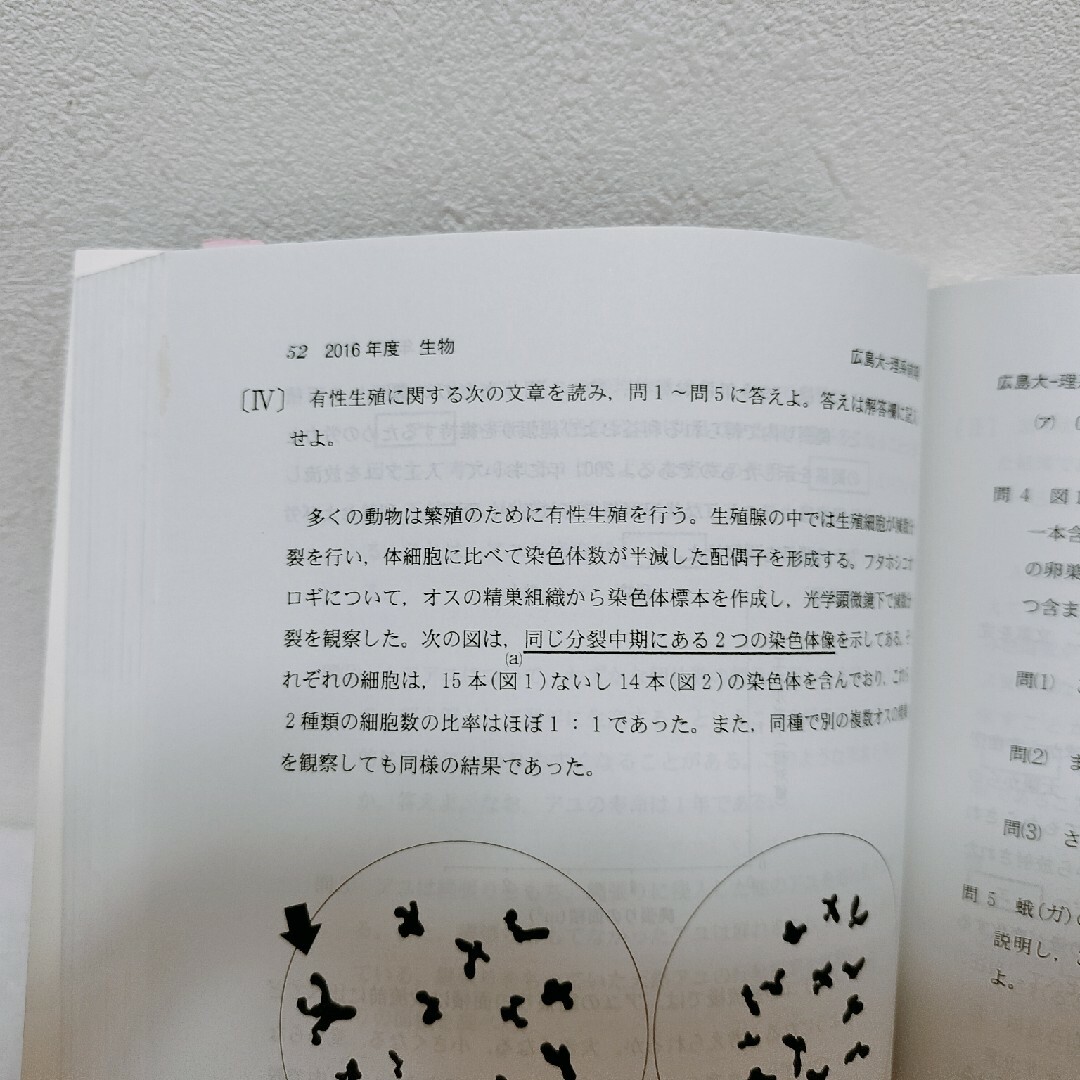 52 2016年度 生物
広島大-理系前期
〔Ⅳ〕 有性生殖に関する次の文章を読み，問1〜問5に答えよ。答えは解答欄に記入
せよ。
多くの動物は繁殖のために有性生殖を行う。生殖腺の中では生殖細胞が減数分
裂を行い，体細胞に比べて染色体数が半減した配偶子を形成する。フタホシコオ
ロギについて，オスの精巣組織から染色体標本を作成し，光学顕微鏡下で減数分
裂を観察した。次の図は，同じ分裂中期にある2つの染色体像を示してある。そ
(a)
れぞれの細胞は，15本(図1)ないし14本(図2)の染色体を含んでおり，これら
2種類の細胞数の比率はほぼ1：1であった。また，同種で別の複数オスの
を観察しても同様の結果であった。
広島大-理
(ア)
問4 図1
一本含
の卵巣
つ含ま
問(1)
問(2) ま
問(3) さ
問5 蛾(ガ)
説明し，
よ。